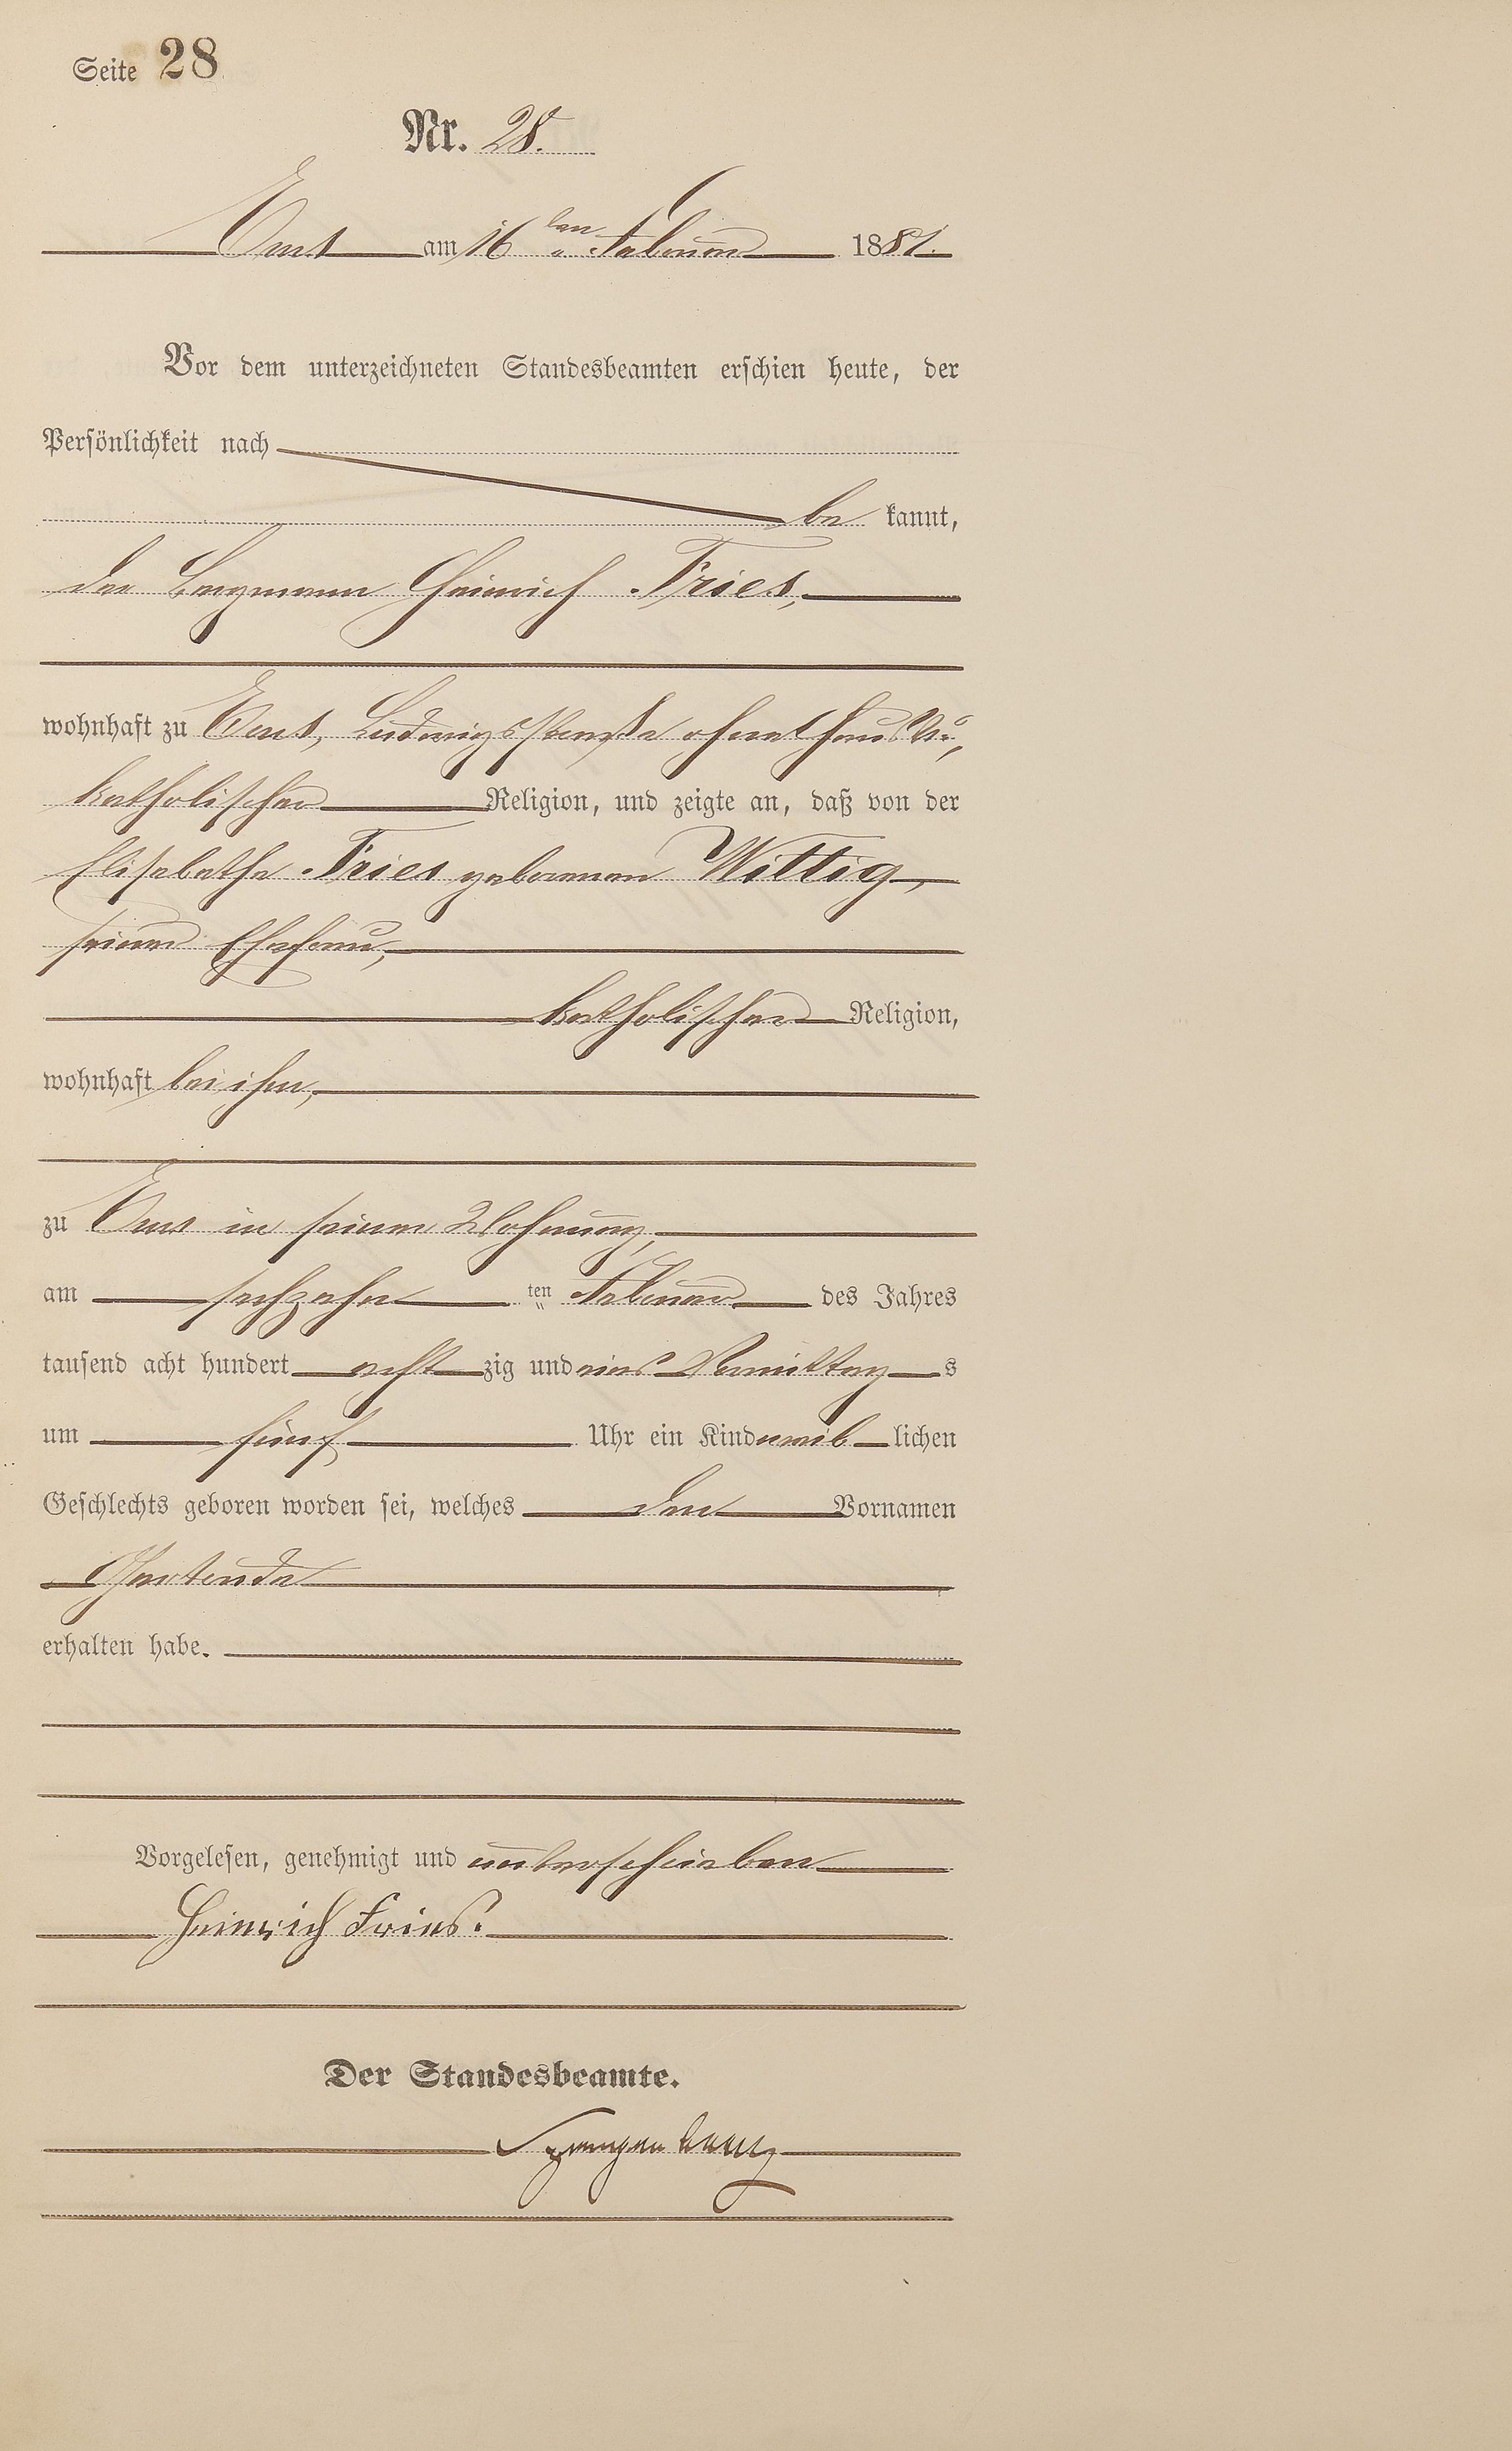 Seite 28
Nr. 28.
Ems am 16ten Februar 1881.
Vor dem unterzeichneten Standesbeamten erschien heute, der
Persönlichkeit nach
be kannt,
der Bergmann Heinrich Fries,
wohnhaft zu Ems, Ludwigsstraße ohne Haus Nr.,
katholischer Religion, und zeigte an, daß von der
Elisabethe Fries geborenen Wittig,
seiner Ehefrau,
katholischer Religion,
wohnhaft bei ihm,
zu Ems in seiner Wohnung,
am sechzehn ten Februar des Jahres
tausend acht hundert acht zig und eins Vormittag s
um fünf Uhr ein Kind weib lichen
Geschlechts geboren worden sei, welches den Vornamen
erhalten habe.
Vorgelesen, genehmigt und unterschrieben
Heinrich Fries.
Der Standesbeamte.
Spangenberg